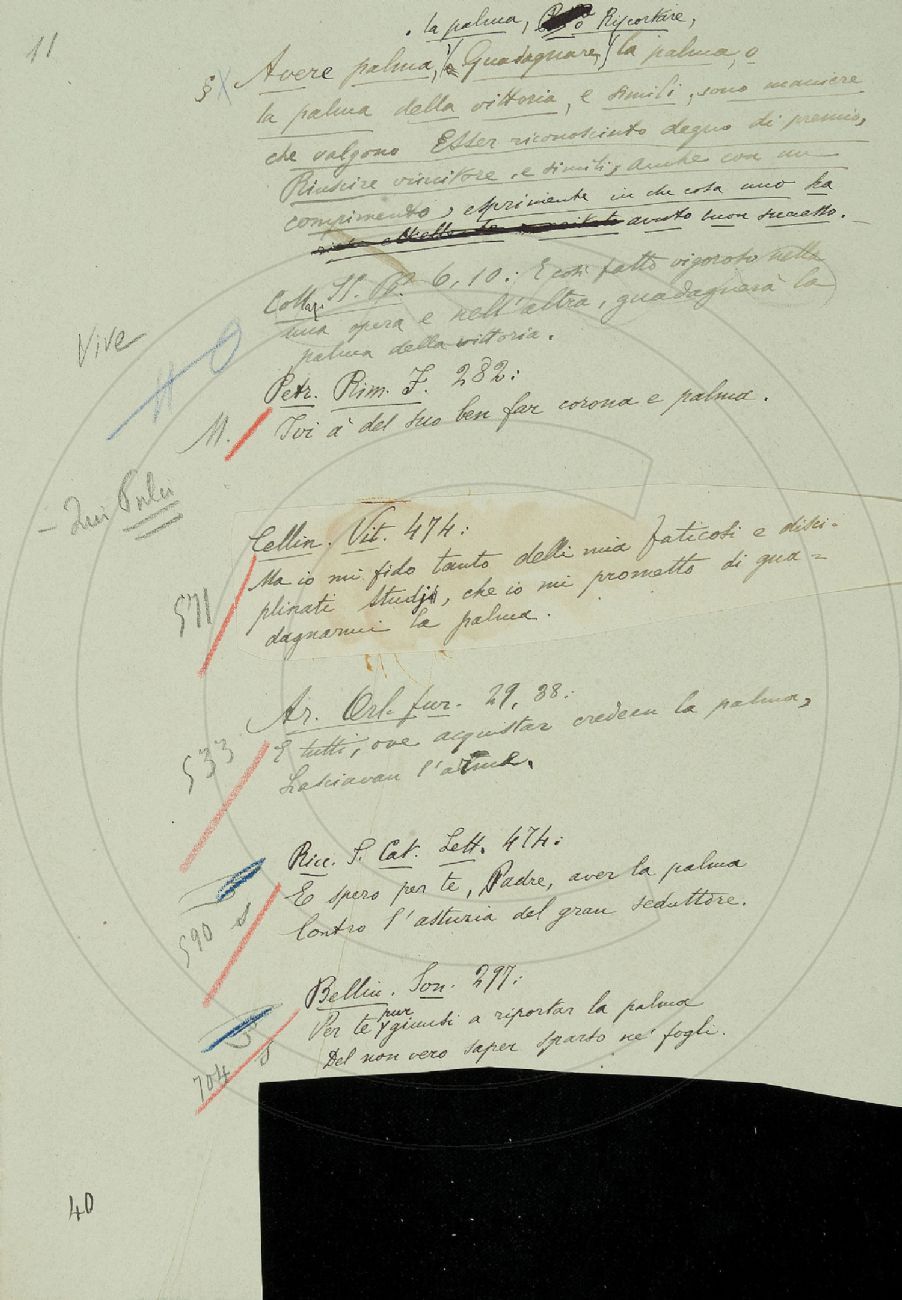 11
la palma, o Riportare,
§ X Avere palma, Guadagnare, la palma, o
la palma della vittoria, e simili, sono maniere
che valgono Esser riconosciuto degno di premio,
Riuscire vincitore, e simili, anche con un
compimento, esprimente in che cosa uno ha
avuto buon successo.
Collaz. SS. PP. 6, 10.: E così fatto vigoroso nell'
una opera e nell'altra, guadagnerà la
palma della vittoria.
Vive
Petr. Rim. F. 282:
M.
Ivi à del suo ben far corona e palma.
Pulci
Cellin. Vit. 474:
Ma io mi fido tanto delli mia faticosi e disci-
571
plinati studj, che io mi prometto di gua=
dagnarmi la palma.
Ar. Orl. fur. 29, 38:
533
E tutti, ove acquistar credean la palma,
Lasciavan l'arme.
Ricc. S. Cat. Lett. 474:
E spero per te, Padre, aver la palma
590
Contro l'astuzia del gran seduttore.
Bellin. Son. 297:
Per te pur giunsi a riportar la palma
Del non vero saper sparso ne' fogli.
704
40